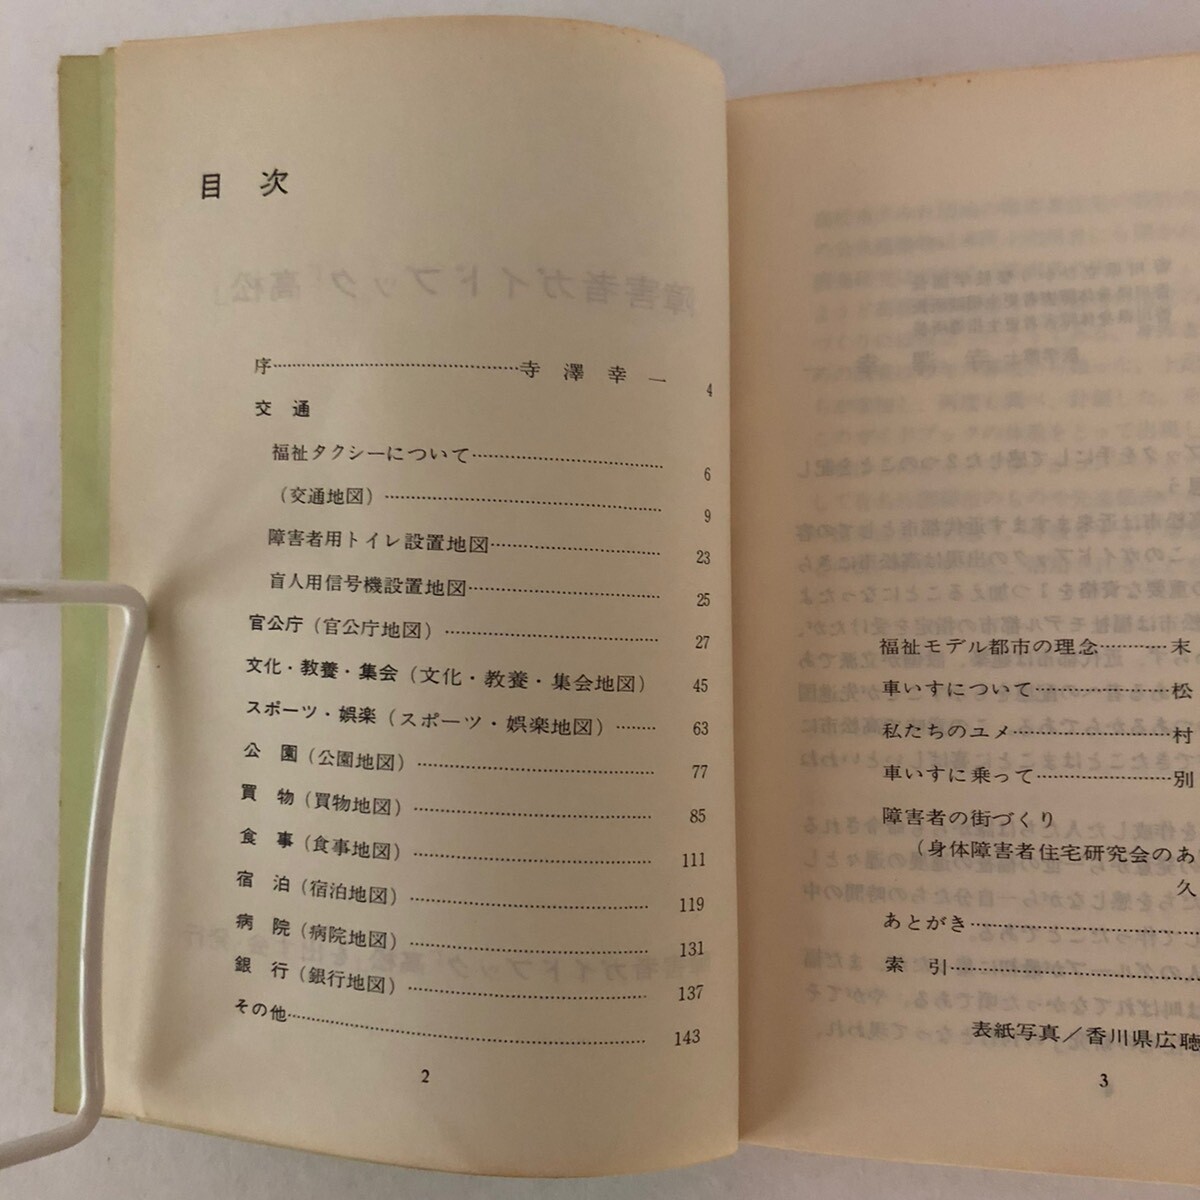 目次
序……………………………寺澤幸一 4
交通
福祉タクシーについて…………………… 6
（交通地図）……………………………… 9
障害者用トイレ設置地図………………… 23
盲人用信号機設置地図…………………… 25
官公庁（官公庁地図）…………………… 27
文化・教養・集会（文化・教養・集会地図） 45
スポーツ・娯楽（スポーツ・娯楽地図）…… 63
公園（公園地図）………………………… 77
買物（買物地図）………………………… 85
食事（食事地図）………………………… 111
宿泊（宿泊地図）………………………… 119
病院（病院地図）………………………… 131
銀行（銀行地図）………………………… 137
その他……………………………………… 143
2
福祉モデル都市の理念…………末
車いすについて…………………松
私たちのユメ……………………村
車いすに乗って…………………別
障害者の街づくり
（身体障害者住宅研究会のあ
久
あとがき……………………………
索引…………………………………
表紙写真／香川県広聴
3